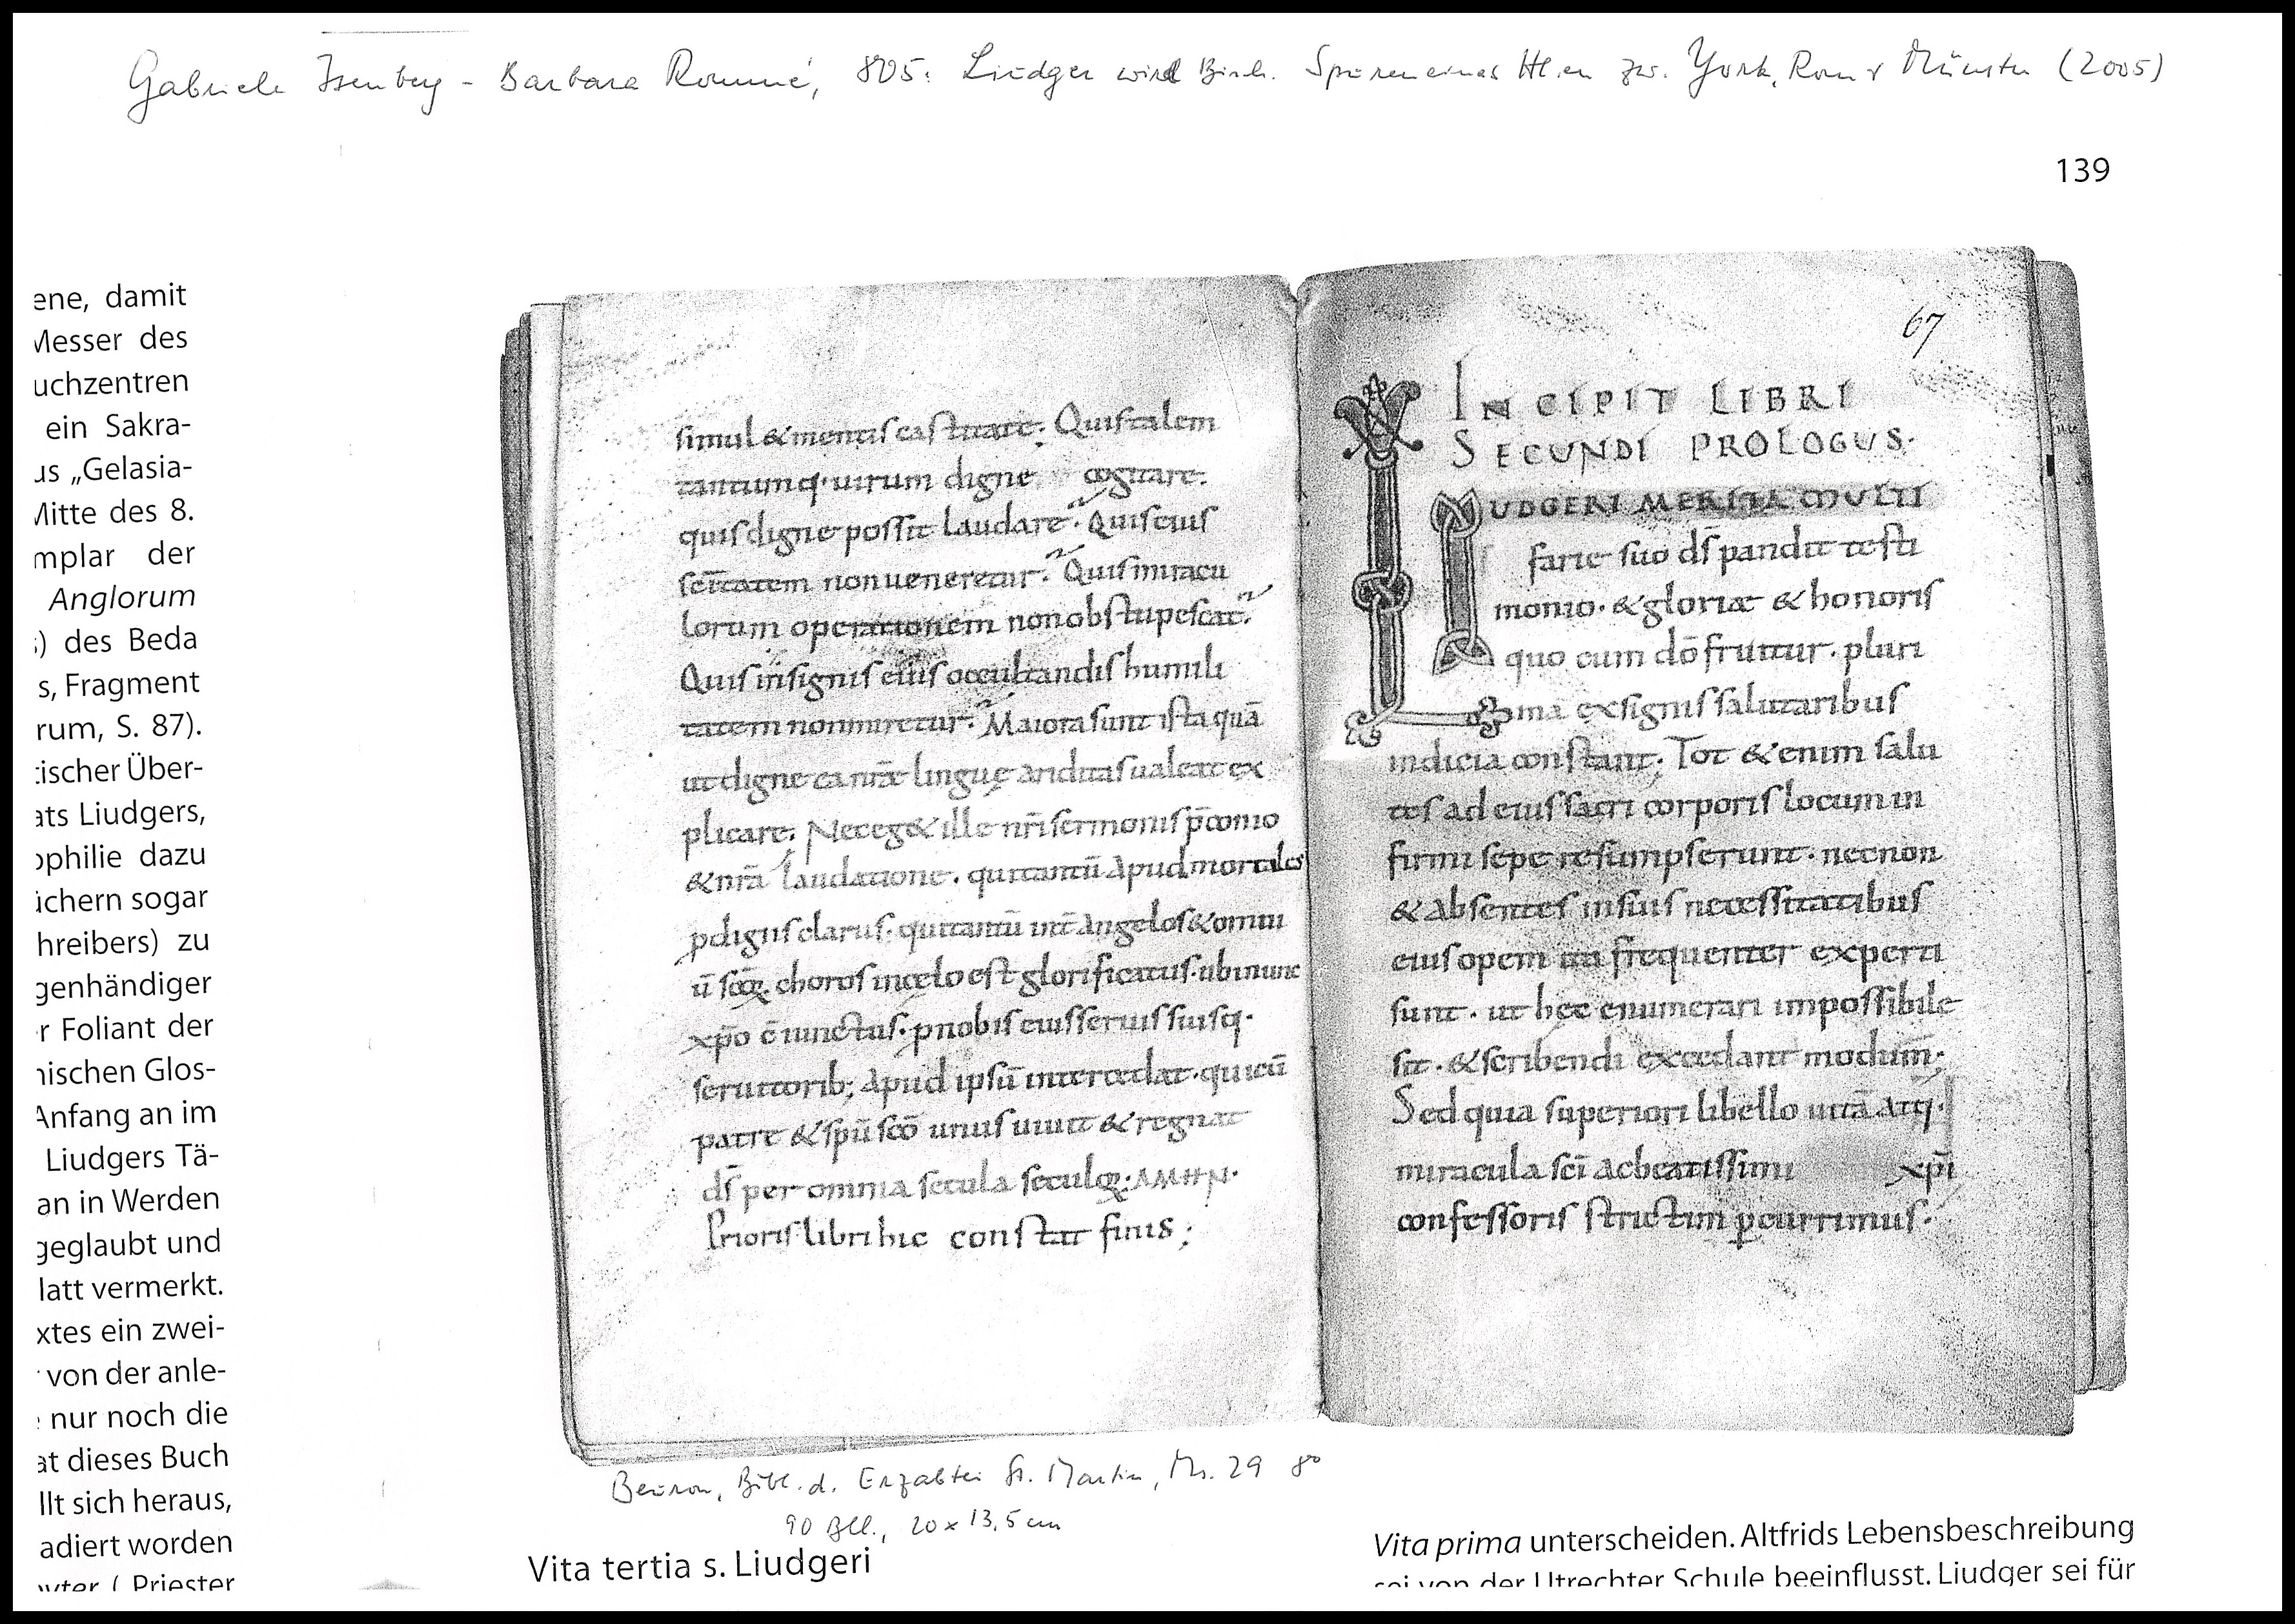 Gabriele Isenberg - Barbara Rommé, 805: Liudger wird Bisch. Spuren eines Hl.en zw. York, Rom u Münster (2005)
139
ene, damit
Messer des
uchzentren
ein Sakra-
us „Gelasia-
Mitte des 8.
mplar der
Anglorum
) des Beda
s, Fragment
rum, S. 87).
tischer Über-
ats Liudgers,
ophilie dazu
ichern sogar
hreibers) zu
genhändiger
r Foliant der
nischen Glos-
Anfang an im
Liudgers Tä-
an in Werden
geglaubt und
latt vermerkt.
xtes ein zwei-
von der anle-
nur noch die
at dieses Buch
llt sich heraus,
adiert worden
Priester
simul & mentis castitate; Quis talem
tantumq· uirum digne cogitare.
quis digne possit laudare? Quis eius
sc̄itatem non ueneretur? Quis miracu
lorum operationem non obstupescat?
Quis insignis eius occultandis humili
tatem non miretur? Maiora sunt ista quā
ut digne ea nr̄æ linguę ariditas ualeat ex
plicare; Nec eg& ille nr̄i sermonis p̄conio
& nr̄a laudatione. qui tantū apud mortales
ꝑ dignis clarus. qui tantū int̄ angelos & omiu
ū sc̄oꝝ choros in cęlo est glorificatus. ubi nunc
xp̄o ē iunctus. ꝓ nobis eius seruis suisq·
seruitorib; apud ipsū intercedat. qui cū
patre & sp̄u sc̄o unus uiuit & regnat
d̄s per omnia secula seculoꝝ. AMHN.
Prioris libri hic constat finis;
67
INCIPIT LIBRI
SECUNDI PROLOGUS.
LIUDGERI MERITA MULTI
farie suo d̄s pandit testi
monio. & gloriæ & honoris
quo cum d̄o fruitur. pluri
ma ex signis salutaribus
indicia constant; Tot &enim salu
tes ad eius sacri corporis locum in
firmi sepe resumpserunt. necnon
& absentes in suis necessitatibus
eius opem ita frequenter experti
sunt. ut hęc enumerari impossibile
sit. & scribendi excedant modum;
Sed quia superiori libello uitā atq·
miracula sc̄i ac beatissimi xp̄i
confessoris strictim ꝑcurrimus.
Beuron, Bibl. d. Erzabtei St. Martin, Ms. 29 8°
90 Bll., 20 x 13,5 cm
Vita tertia s. Liudgeri
Vita prima unterscheiden. Altfrids Lebensbeschreibung
sei von der Utrechter Schule beeinflusst. Liudger sei für